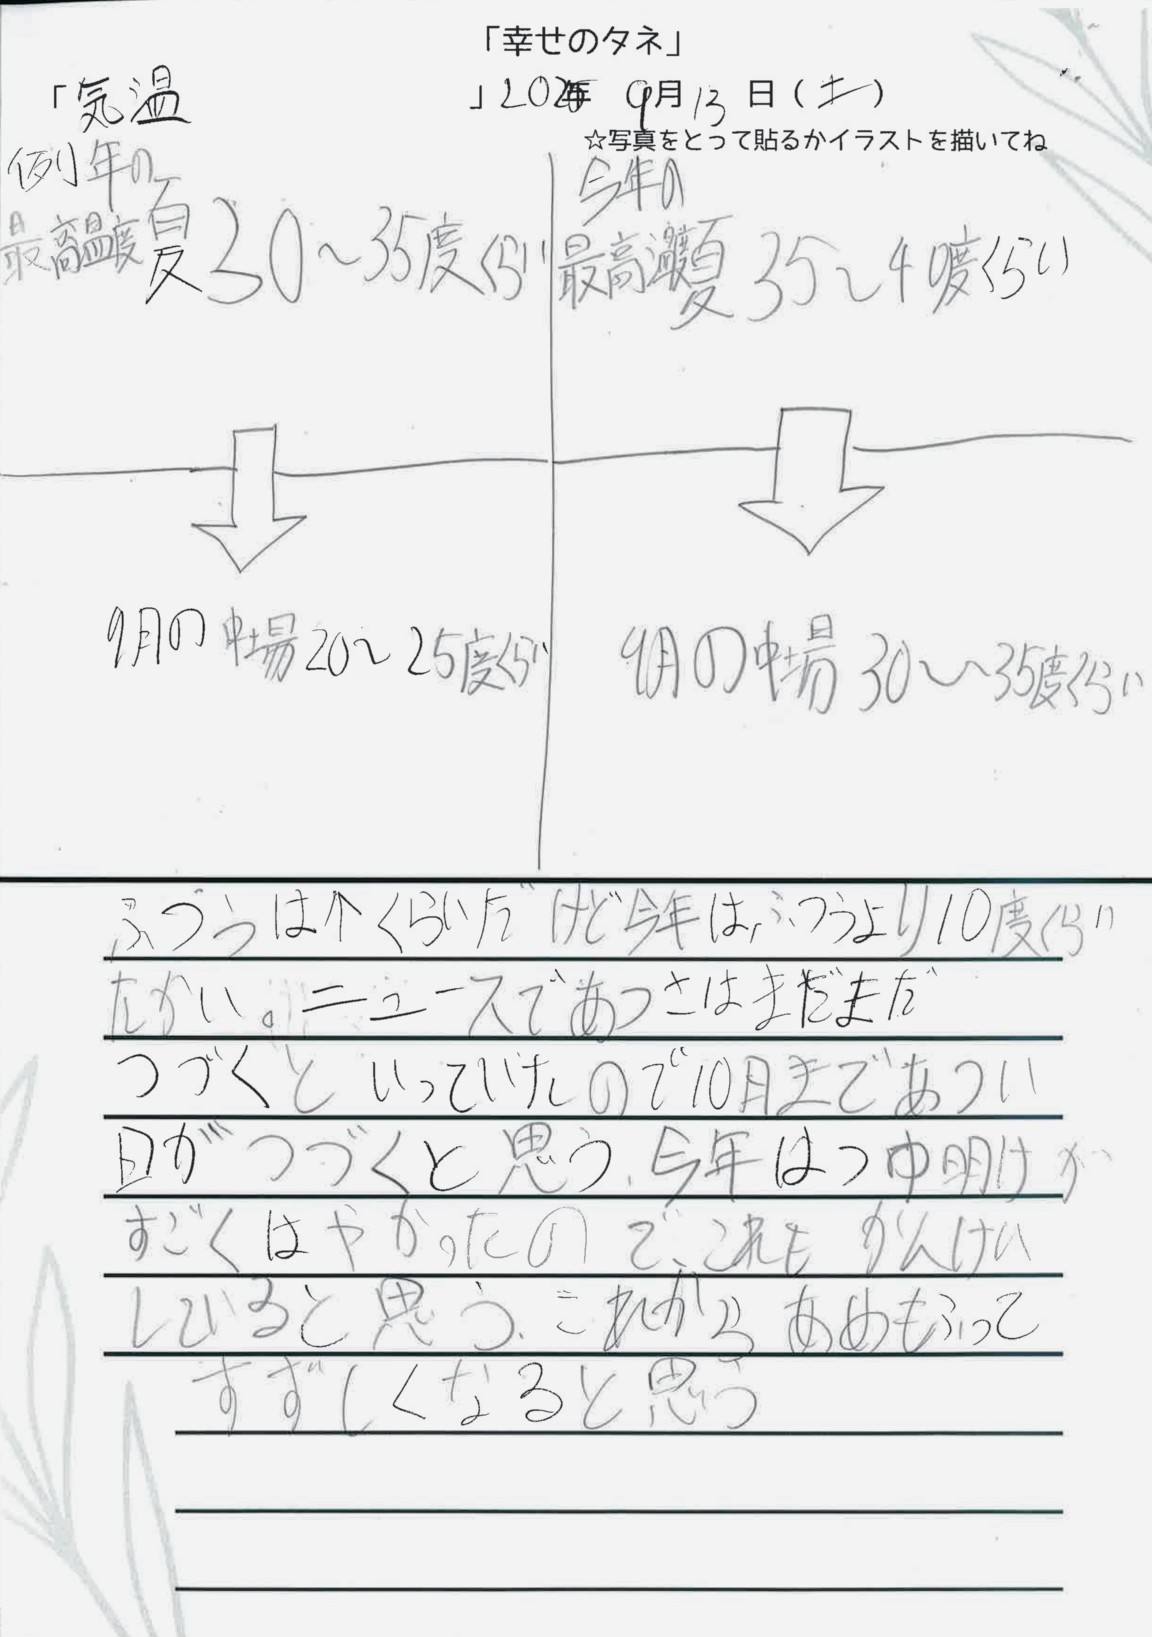 「幸せのタネ」
「気温　　　　」2025年 9月13日(土)
☆写真をとって貼るかイラストを描いてね
例年の
最高温度夏30〜35度くらい
今年の
最高温度夏35〜40度くらい
9月の中場20〜25度くらい
9月の中場30〜35度くらい
ふつうは↑くらいだけど今年は,ふつうより10度くらい
たかい。ニュースであつさはまだまだ
つづくといっていけたので10月まであつい
日がつづくと思う、今年はつ中明けが
すごくはやかったので、これもかんけい
していると思う、これからあめもふって
すずしくなると思う